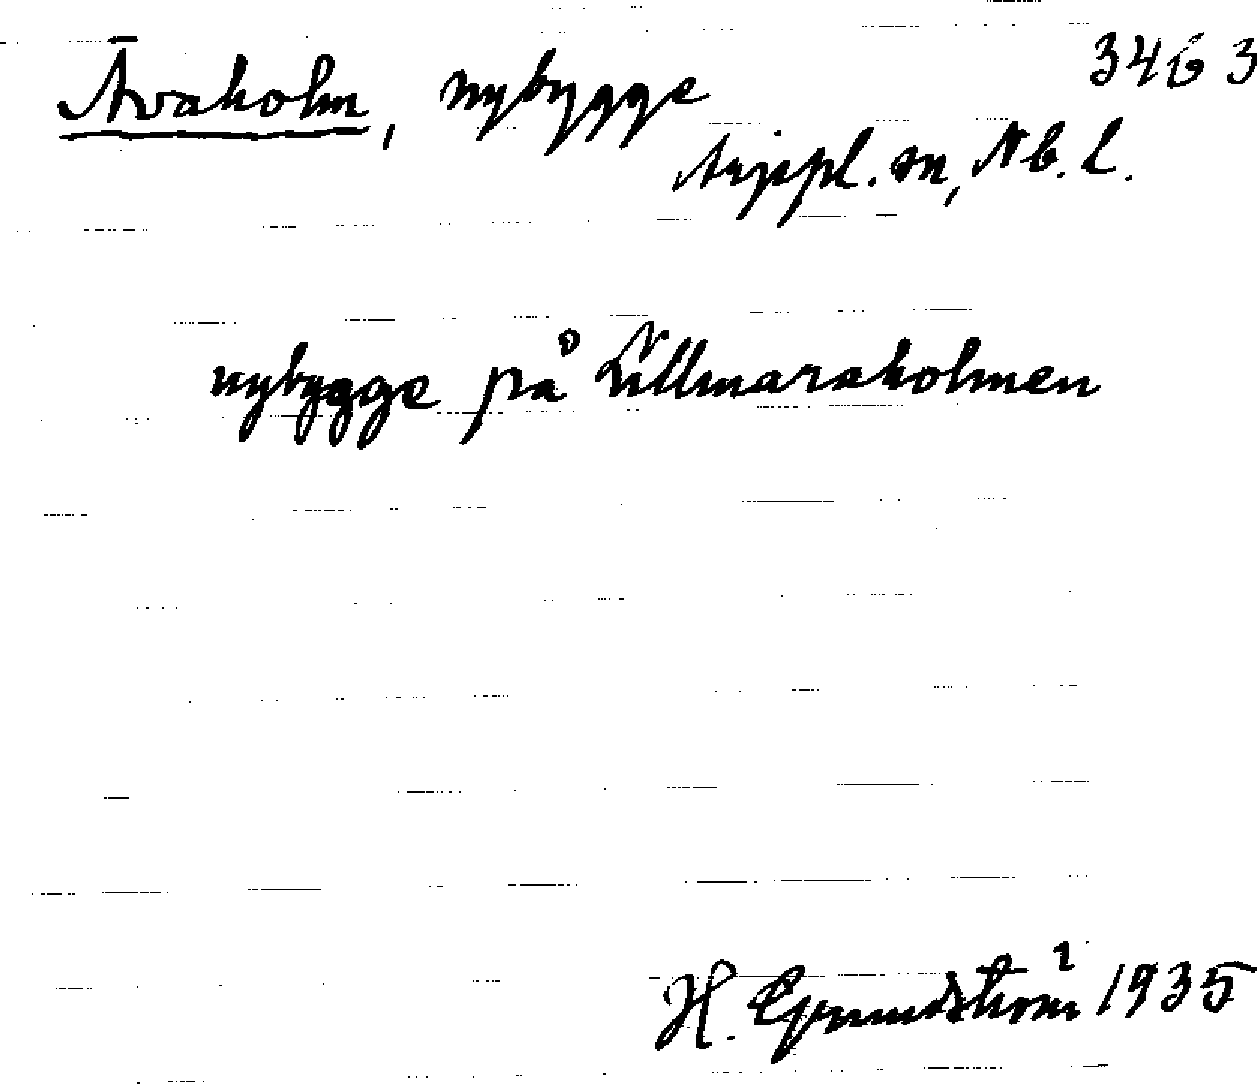 Avaholm, nybygge 3463
Arjepl. sn, Nb. L.
nybygge på Lillmaraholmen
H. Grundström 1935